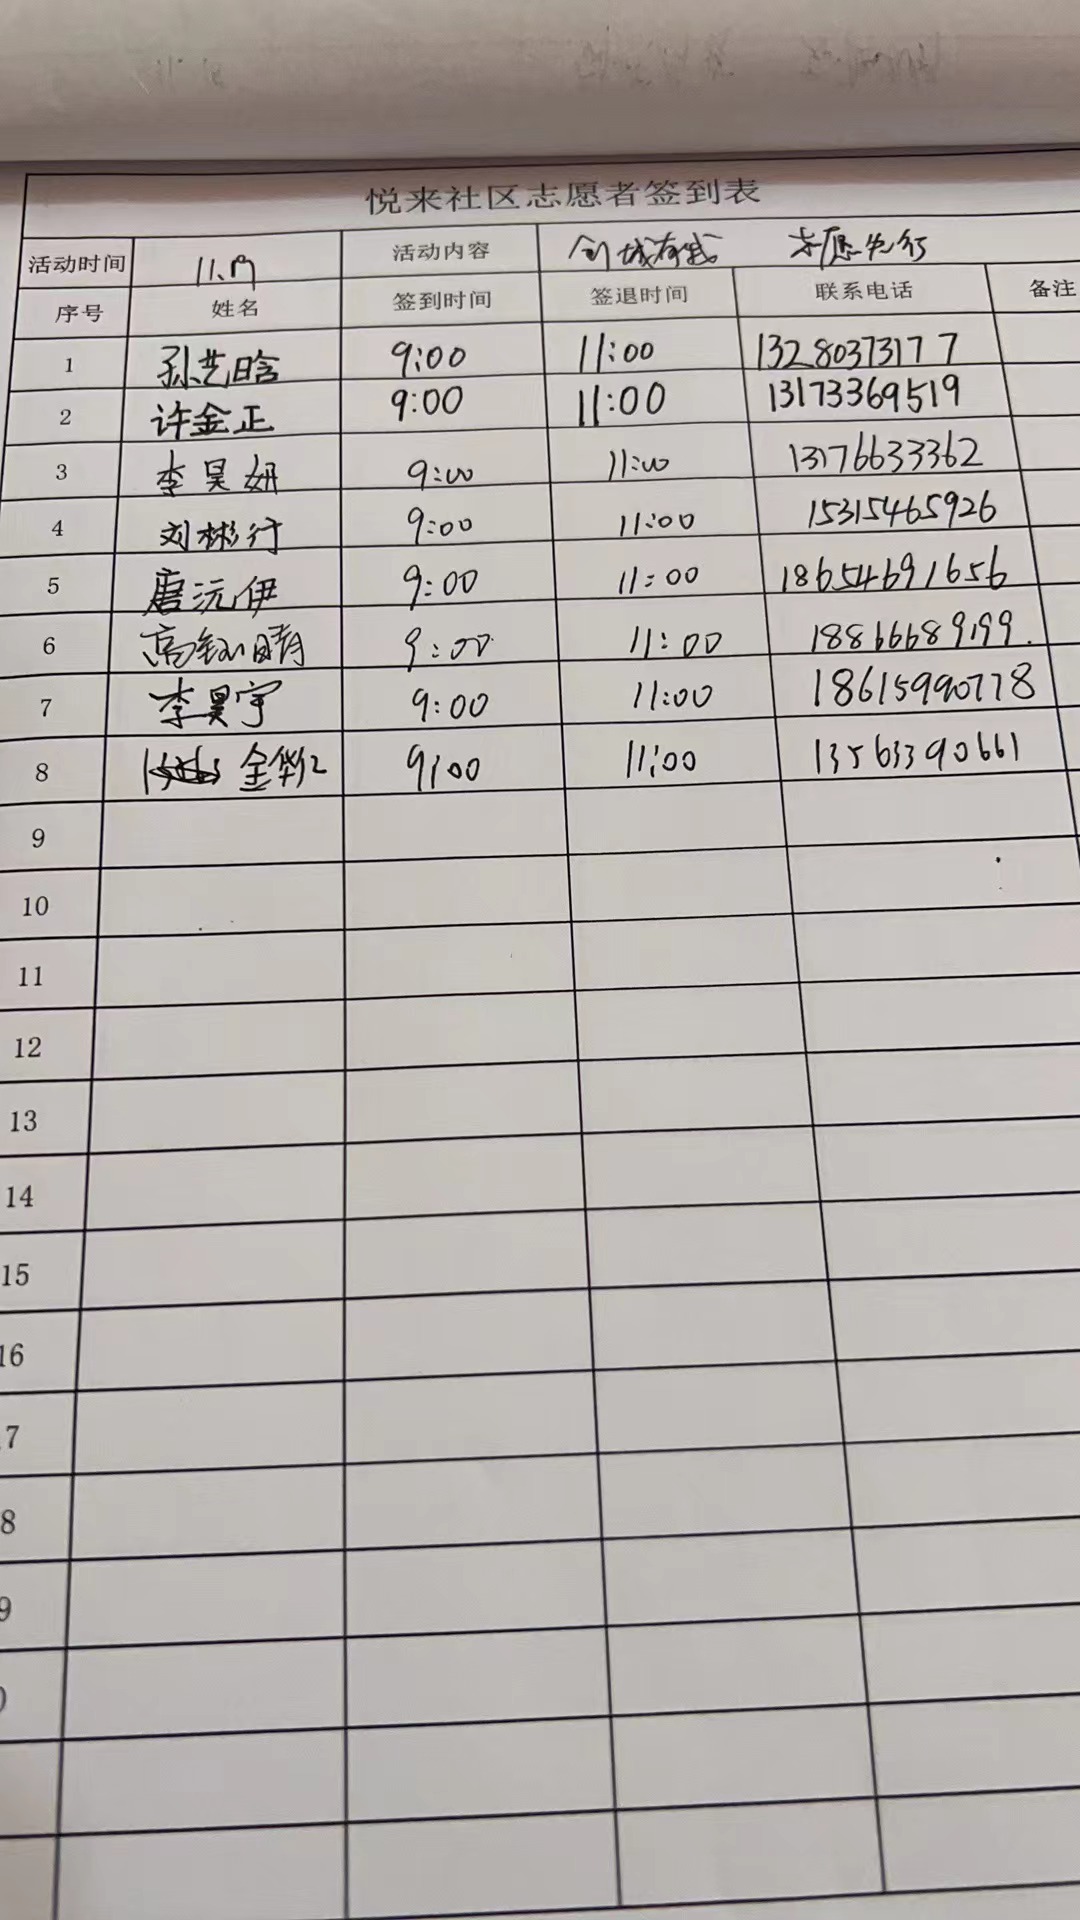 悦来社区志愿者签到表
活动时间 11.19 活动内容 创城有我 志愿先行
序号 姓名 签到时间 签退时间 联系电话 备注
1 孙艺晗 9:00 11:00 13280373177
2 许金正 9:00 11:00 13173369519
3 李昊妍 9:00 11:00 13176633362
4 刘彬行 9:00 11:00 15315465926
5 唐沅伊 9:00 11:00 18654691656
6 高钰晴 9:00 11:00 18866689199.
7 李昊宇 9:00 11:00 18615990778
8 金 9:00 11:00 13563390661
9
10
11
12
13
14
15
16
7
8
9
0